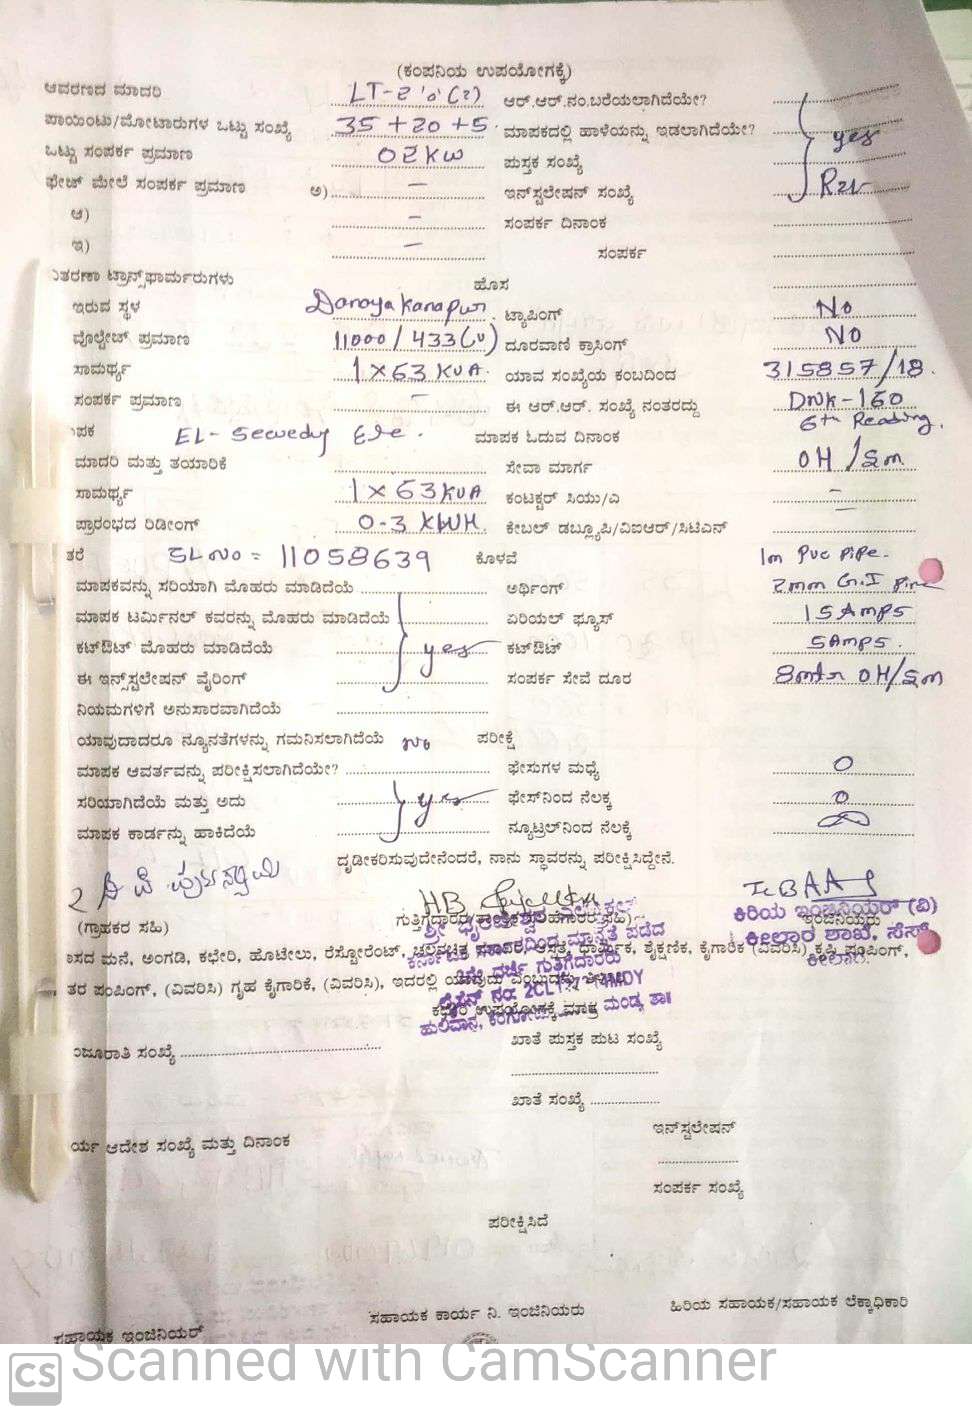 (ಕಂಪನಿಯ ಉಪಯೋಗಕ್ಕೆ)
ಆವರಣದ ಮಾದರಿ LT-2 ಆರ್.ಆರ್.ನಂ.ಬರೆಯಲಾಗಿದೆಯೇ?
ಪಾಯಿಂಟು/ಮೋಟಾರುಗಳ ಒಟ್ಟು ಸಂಖ್ಯೆ 35 +20 +5 ಮಾಪಕದಲ್ಲಿ ಹಾಳೆಯನ್ನು ಇಡಲಾಗಿದೆಯೇ? yes
ಒಟ್ಟು ಸಂಪರ್ಕ ಪ್ರಮಾಣ 02 KW ಪುಸ್ತಕ ಸಂಖ್ಯೆ
ಫೇಜ್ ಮೇಲೆ ಸಂಪರ್ಕ ಪ್ರಮಾಣ ಅ) – ಇನ್‌ಸ್ಟಲೇಷನ್ ಸಂಖ್ಯೆ
ಆ) – ಸಂಪರ್ಕ ದಿನಾಂಕ
ಇ) – ಸಂಪರ್ಕ
ತರಣಾ ಟ್ರಾನ್ಸ್‌ಫಾರ್ಮರುಗಳು ಹೊಸ
ಇರುವ ಸ್ಥಳ ಟ್ಯಾಪಿಂಗ್ No
ವೊಲ್ಟೇಜ್ ಪ್ರಮಾಣ 11000 / 433 (V) ದೂರವಾಣಿ ಕ್ರಾಸಿಂಗ್ NO
ಸಾಮರ್ಥ್ಯ 1 X 63 KVA. ಯಾವ ಸಂಖ್ಯೆಯ ಕಂಬದಿಂದ 315857/18.
ಸಂಪರ್ಕ ಪ್ರಮಾಣ – ಈ ಆರ್.ಆರ್. ಸಂಖ್ಯೆ ನಂತರದ್ದು DNK-160
ಪಕ ಮಾಪಕ ಓದುವ ದಿನಾಂಕ 6th Reading.
ಮಾದರಿ ಮತ್ತು ತಯಾರಿಕೆ ಸೇವಾ ಮಾರ್ಗ OH /Sm
ಸಾಮರ್ಥ್ಯ 1 X 63 KVA ಕಂಟಕ್ಟರ್ ಸಿಯು/ಎ –
ಪ್ರಾರಂಭದ ರಿಡೀಂಗ್ 0-3 KWH. ಕೇಬಲ್ ಡಬ್ಲ್ಯೂಪಿ/ವಿಐಆರ್/ಸಿಟಿಎನ್ –
ತರೆ SL No = 11058639 ಕೊಳವೆ 1m Pvc Pipe.
ಮಾಪಕವನ್ನು ಸರಿಯಾಗಿ ಮೊಹರು ಮಾಡಿದೆಯೆ ಅರ್ಥಿಂಗ್ 2mm G.I
ಮಾಪಕ ಟರ್ಮಿನಲ್ ಕವರನ್ನು ಮೊಹರು ಮಾಡಿದೆಯೆ ಏರಿಯಲ್ ಫ್ಯೂಸ್ 15Amps
ಕಟ್‌ಔಟ್ ಮೊಹರು ಮಾಡಿದೆಯೆ yes ಕಟ್‌ಔಟ್ 5Amps.
ಈ ಇನ್ಸ್‌ಸ್ಟಲೇಷನ್ ವೈರಿಂಗ್ ಸಂಪರ್ಕ ಸೇವೆ ದೂರ 8mtr OH/Sm
ನಿಯಮಗಳಿಗೆ ಅನುಸಾರವಾಗಿದೆಯೆ
ಯಾವುದಾದರೂ ನ್ಯೂನತೆಗಳನ್ನು ಗಮನಿಸಲಾಗಿದೆಯೆ No ಪರೀಕ್ಷೆ
ಮಾಪಕ ಆವರ್ತವನ್ನು ಪರೀಕ್ಷಿಸಲಾಗಿದೆಯೇ? ಫೇಸುಗಳ ಮಧ್ಯೆ 0
ಸರಿಯಾಗಿದೆಯೆ ಮತ್ತು ಅದು yes ಫೇಸ್‌ನಿಂದ ನೆಲಕ್ಕೆ 0
ಮಾಪಕ ಕಾರ್ಡನ್ನು ಹಾಕಿದೆಯೆ ನ್ಯೂಟ್ರಲ್‌ನಿಂದ ನೆಲಕ್ಕೆ
ದೃಢೀಕರಿಸುವುದೇನೆಂದರೆ, ನಾನು ಸ್ಥಾವರನ್ನು ಪರೀಕ್ಷಿಸಿದ್ದೇನೆ.
(ಗ್ರಾಹಕರ ಸಹಿ) ಇಂಜಿನಿಯರು
ಕಿರಿಯ ಇಂಜಿನಿಯರ್ (ವಿ)
ಕೀಲಾರ ಶಾಖೆ, ಸೆಸ್ಕ್
ಕೀಲಾರ.
ಸದ ಮನೆ, ಅಂಗಡಿ, ಕಛೇರಿ, ಹೊಟೇಲು, ರೆಸ್ಟೋರೆಂಟ್, ಧಾರ್ಮಿಕ, ಶೈಕ್ಷಣಿಕ, ಕೈಗಾರಿಕ (ವಿವರಿಸಿ) ಕೃಷಿ ಪಂಪಿಂಗ್,
ತರ ಪಂಪಿಂಗ್, (ವಿವರಿಸಿ) ಗೃಹ ಕೈಗಾರಿಕೆ, (ವಿವರಿಸಿ), ಇದರಲ್ಲಿ
ಮಂಡ್ಯ ತಾ॥
ಸಂಖ್ಯೆ ಖಾತೆ ಪುಸ್ತಕ ಪುಟ ಸಂಖ್ಯೆ
ಖಾತೆ ಸಂಖ್ಯೆ
ಇನ್‌ಸ್ಟಲೇಷನ್
ರ್ಯ ಆದೇಶ ಸಂಖ್ಯೆ ಮತ್ತು ದಿನಾಂಕ
ಸಂಪರ್ಕ ಸಂಖ್ಯೆ
ಪರೀಕ್ಷಿಸಿದೆ
ಸಹಾಯಕ ಇಂಜಿನಿಯರ್ ಸಹಾಯಕ ಕಾರ್ಯ ನಿ. ಇಂಜಿನಿಯರು ಹಿರಿಯ ಸಹಾಯಕ/ಸಹಾಯಕ ಲೆಕ್ಕಾಧಿಕಾರಿ
CS Scanned with CamScanner